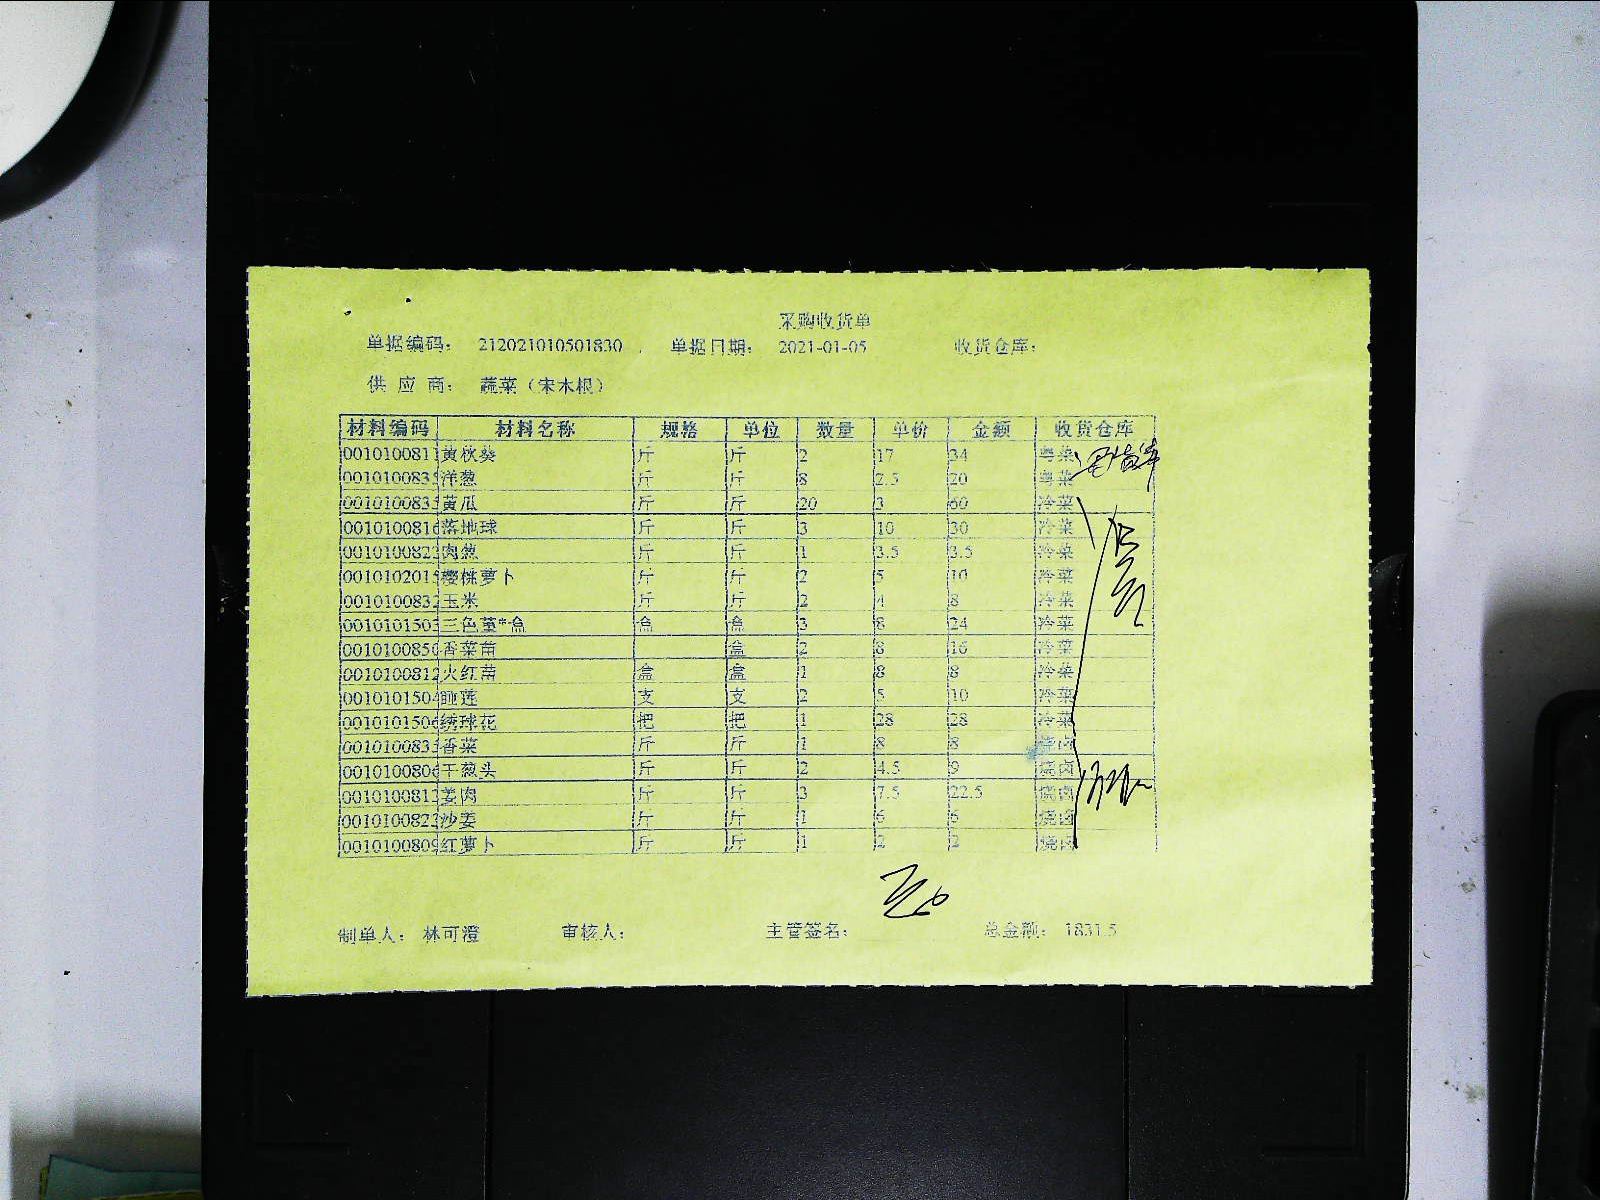 采购收货单
单据编码： 212021010501830 单据日期： 2021-01-05 收货仓库：
供 应 商： 蔬菜（宋木根）
材料编码 材料名称 规格 单位 数量 单价 金额 收货仓库
001010081 黄秋葵 斤 斤 2 17 34 粤菜
001010083 洋葱 斤 斤 8 2.5 20 粤菜
001010083 黄瓜 斤 斤 20 3 60 冷菜
001010081 落地球 斤 斤 3 10 30 冷菜
001010082 肉葱 斤 斤 1 3.5 3.5 冷菜
001010201 樱桃萝卜 斤 斤 2 5 10 冷菜
001010083 玉米 斤 斤 2 4 8 冷菜
001010150 三色堇*盒 盒 盒 3 8 24 冷菜
001010085 香菜苗 盒 2 8 16 冷菜
001010081 火红苗 盒 盒 1 8 8 冷菜
001010150 睡莲 支 支 2 5 10 冷菜
001010150 绣球花 把 把 1 28 28 冷菜
001010083 香菜 斤 斤 1 8 8 烧卤
001010080 干葱头 斤 斤 2 4.5 9 烧卤
001010081 姜肉 斤 斤 3 7.5 22.5 烧卤
001010082 沙姜 斤 斤 1 6 6 烧卤
001010080 红萝卜 斤 斤 1 2 2 烧卤
制单人： 林可澄 审核人： 主管签名： 总金额： 1831.5